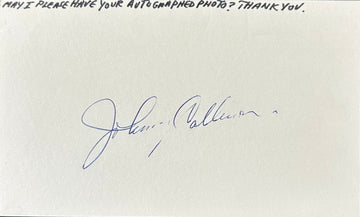 MAY I PLEASE HAVE YOUR AUTOGRAPHED PHOTO? THANK YOU.
Johnny Callison